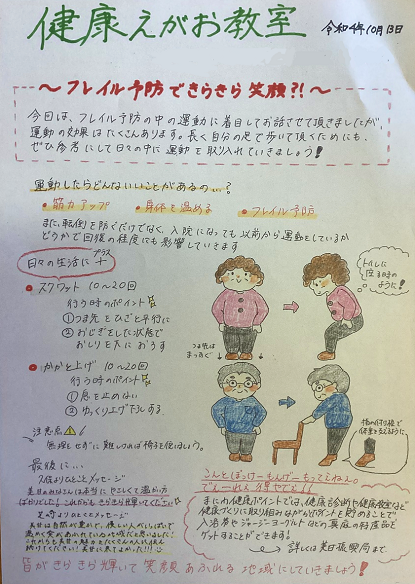 健康えがお教室
令和4年10月13日
～フレイル予防できらきら笑顔?!～
今日は、フレイル予防の中の運動に着目してお話させて頂きましたが、
運動の効果はたくさんあります。長く自分の足で歩いて頂くためにも、
ぜひ参考にして日々の中に運動を取り入れていきましょう!
運動したらどんないいことがあるの…?
・筋力アップ ・身体を温める ・フレイル予防
また、転倒を防ぐだけでなく、入院になっても以前から運動をしているか
どうかで回復の程度にも影響していきます
日々の生活に+プラス
トイレに
座る時の
ように!
・スクワット 10~20回
行う時のポイント
①つま先をひざと平行に
②おじぎをした状態で
おしりを下におろす
つま先は
まっすぐ
・かかと上げ 10~20回
行う時のポイント
①息を止めない
②ゆっくり上げ下しする
指の付け根で
体重を支えるように
注意点
無理しせずに難しければ椅子を使おう。
最後に…
ひとことメッセージ
こんとぼっけーもんげーもってねん。
まにわ健康ポイントでは、健康診断や健康教室など
健康づくりに取り組みながらポイントを貯めることで
入浴券やジャージーヨーグルトなどの真庭の特産品を
ゲットすることができます。
詳しくは美甘振興局まで
きらきら輝いて笑顔あふれる地域にしていきましょう!